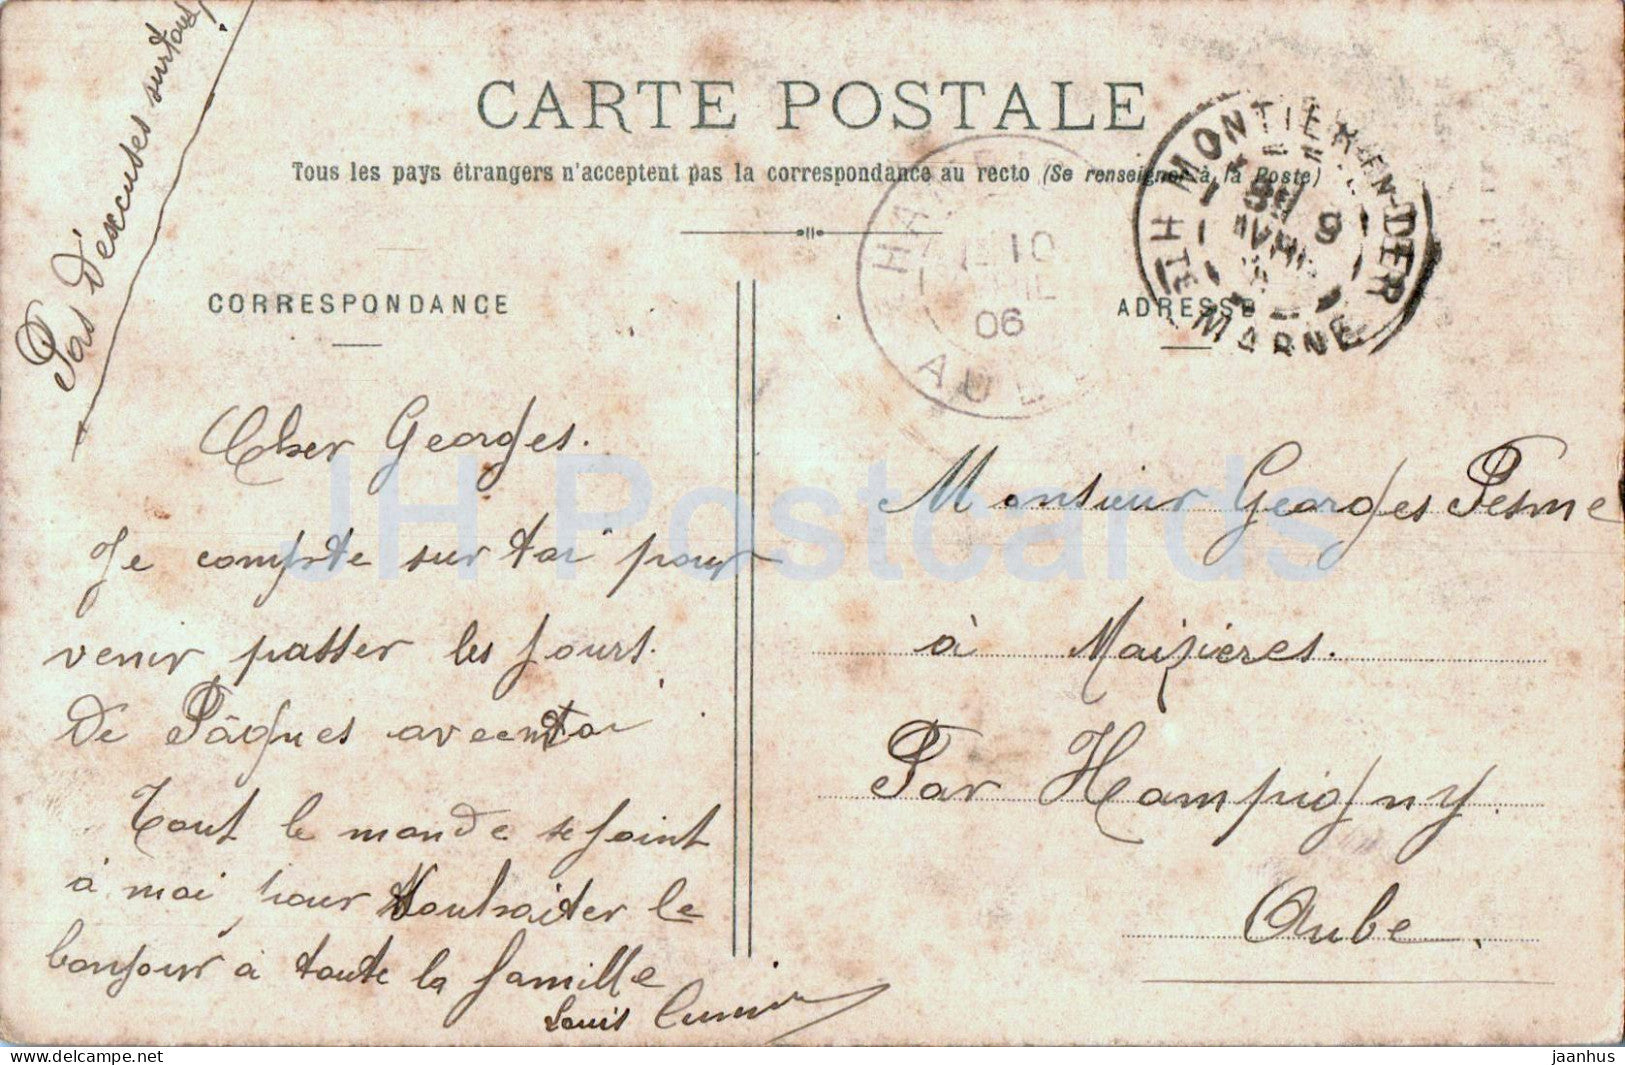 Pas d'excuses surtout
CARTE POSTALE
Tous les pays étrangers n'acceptent pas la correspondance au recto (Se renseigner à la Poste)
MONTIER-EN-DER
Hte MARNE
9
AVRIL
10
06
AUBE
CORRESPONDANCE
ADRESSE
Cher Georges.
Je compte sur toi pour
venir passer les jours.
De Pâques avec toi
Tout le monde se joint
à moi pour souhaiter le
bonjour à toute la famille
Louis
Monsieur Georges Pesme
à Maizières.
Par Hampigny.
Aube.
JH Postcards
jaanhus
www.delcampe.net